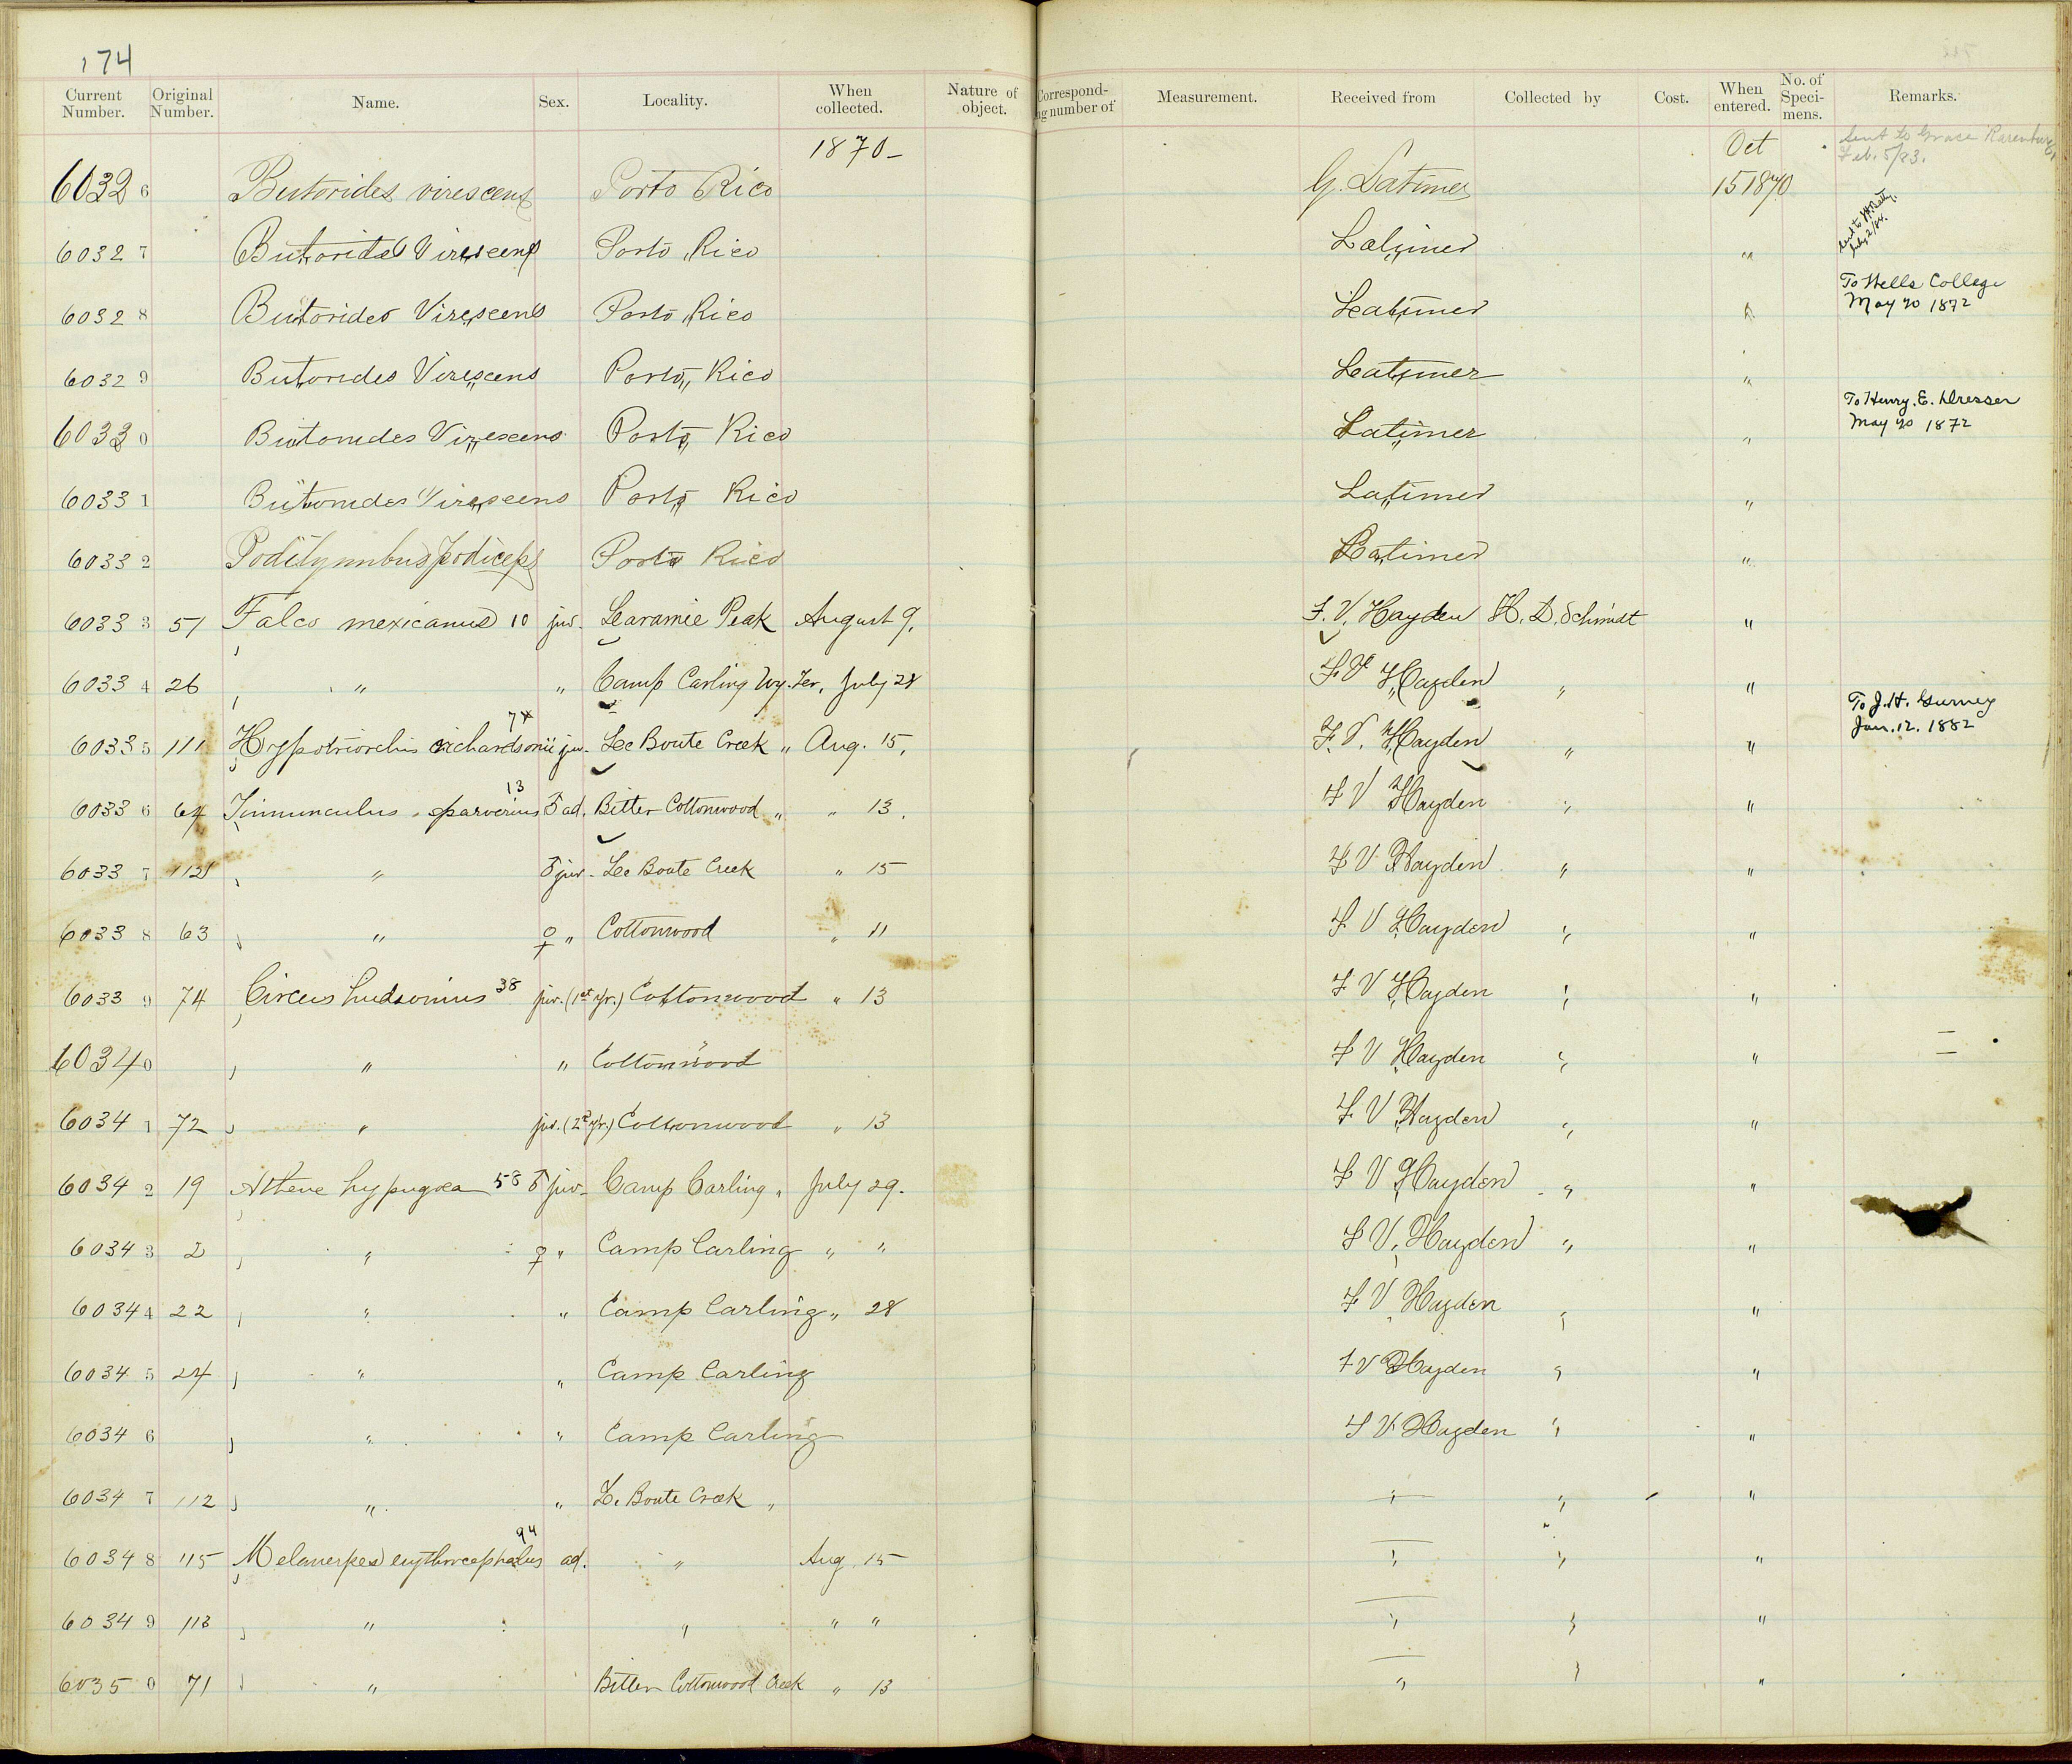 174
Current Number. Original Number. Name. Sex. Locality. When collected. Nature of object. Correspond- ing number of Measurement. Received from Collected by Cost. When entered. No. of Speci- mens. Remarks.
1870- Oct Sent to Grace
Feb. 5/83.
60326 Butorides virescens Porto Rico G. Latimer 15 1870
60327 Butorides Virescens Porto Rico Latimer " Sent to
July 2/84.
60328 Butorides Virescens Porto Rico Latimer " To Wells College
May 20 1872
60329 Butorides Virescens Porto Rico Latimer "
60330 Butorides Virescens Porto Rico Latimer " To Henry. E. Dresser
May 20 1872
60331 Butorides Virescens Porto Rico Latimer "
60332 Podilymbus podiceps Porto Rico Latimer "
60333 51 Falco mexicanus 10 juv. Laramie Peak August 9. F. V. Hayden H. D. Schmidt "
60334 26 " " Camp Carling Wy. Ter. July 28 F. V Hayden " "
60335 111 Hypotriorchis richardsonii 74 juv. Le Boute Creek " Aug. 15. F. V. Hayden " " To J. H. Gurney
Jan. 12. 1882
60336 64 Tinnunculus sparverius 13 ♂ ad. Bitter Cottonwood " " 13. F V Hayden " "
60337 113 " ♂ juv. Le Boute Creek " 15 F V Hayden " "
60338 63 " ♀ " Cottonwood " 11 F V Hayden " "
60339 74 Circus hudsonius 38 juv. (1st yr.) Cottonwood " 13 F V Hayden " "
60340 " " Cottonwood F V Hayden " "
60341 72 " juv. (2d yr.) Cottonwood " 13 F V Hayden " "
60342 19 Athene hypugaea 58 ♂ juv. Camp Carling " July 29. F V Hayden " "
60343 2 " ♀ " Camp Carling " " F V, Hayden " "
60344 22 " " Camp Carling " 28 F V Hayden " "
60345 24 " " Camp Carling F V Hayden " "
60346 " " Camp Carling F V Hayden " "
60347 112 " " Le Boute Creek " " " "
60348 115 Melanerpes erythrocephalus 94 ad. " Aug 15 " " "
60349 113 " " " " " " "
60350 71 " Bitter Cottonwood Creek " 13 " " "